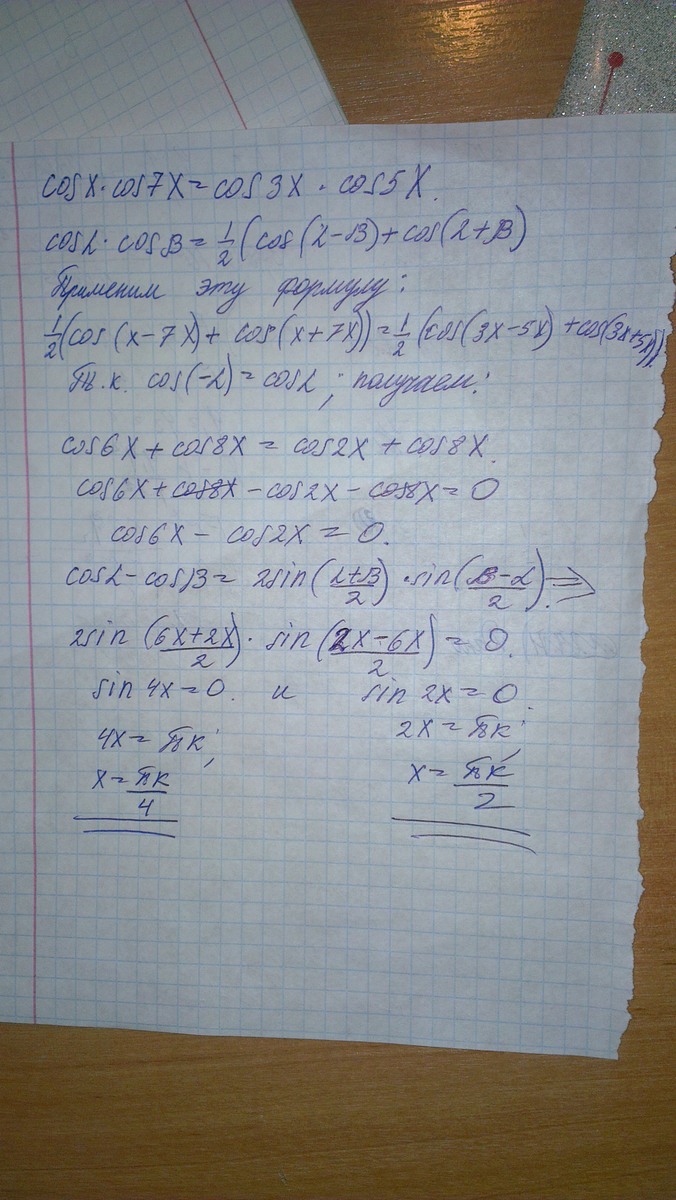 cosx·cos7x=cos3x·cos5x.
cosα·cosβ=1/2(cos(α-β)+cos(α+β)
Применим эту формулу:
1/2(cos(x-7x)+cos(x+7x))=1/2(cos(3x-5x)+cos(3x+5x))
Т.к. cos(-α)=cosα; получаем:
cos6x+cos8x=cos2x+cos8x.
cos6x+cos8x-cos2x-cos8x=0
cos6x-cos2x=0.
cosα-cosβ=2sin((α+β)/2)·sin((β-α)/2)⇒
2sin((6x+2x)/2)·sin((2x-6x)/2)=0.
sin4x=0. и sin2x=0.
4x=πк; 2x=πк;
x=πк/4 x=πк/2